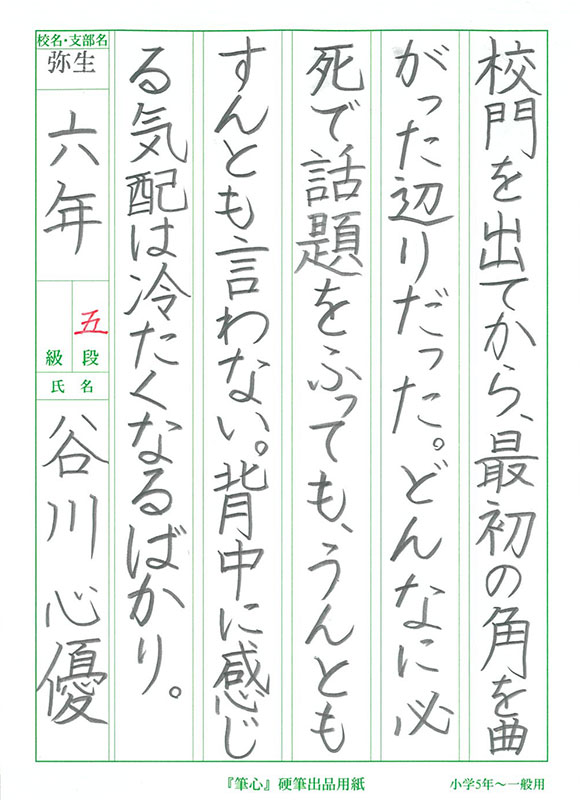 校門を出てから、最初の角を曲
がった辺りだった。どんなに必
死で話題をふっても、うんとも
すんとも言わない。背中に感じ
る気配は冷たくなるばかり。
校名・支部名
弥生
六年
五
級 段
氏 名
谷川心優
『筆心』硬筆出品用紙
小学5年〜一般用